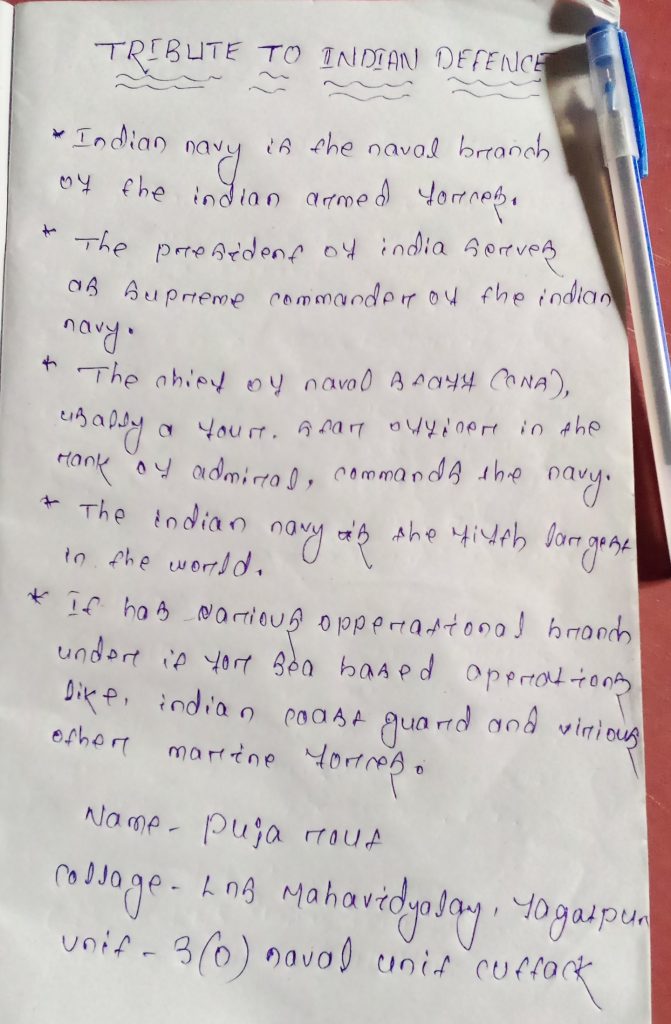 TRIBUTE TO INDIAN DEFENCE
* Indian navy is the naval branch
of the indian armed forces.
* The president of india serves
as supreme commander of the indian
navy.
* The chief of naval staff (CNA),
usally a four. star officer in the
rank of admiral, commands the navy.
* The indian navy is the fifth largest
in the world.
* It has various opperational branch
under it for sea based aperations
like, indian coast guard and virious
other marine forces.
Name - Puja rout
collage - LNB Mahavidyalay, Jagatpur
unit - 3(O) naval unit cuttack